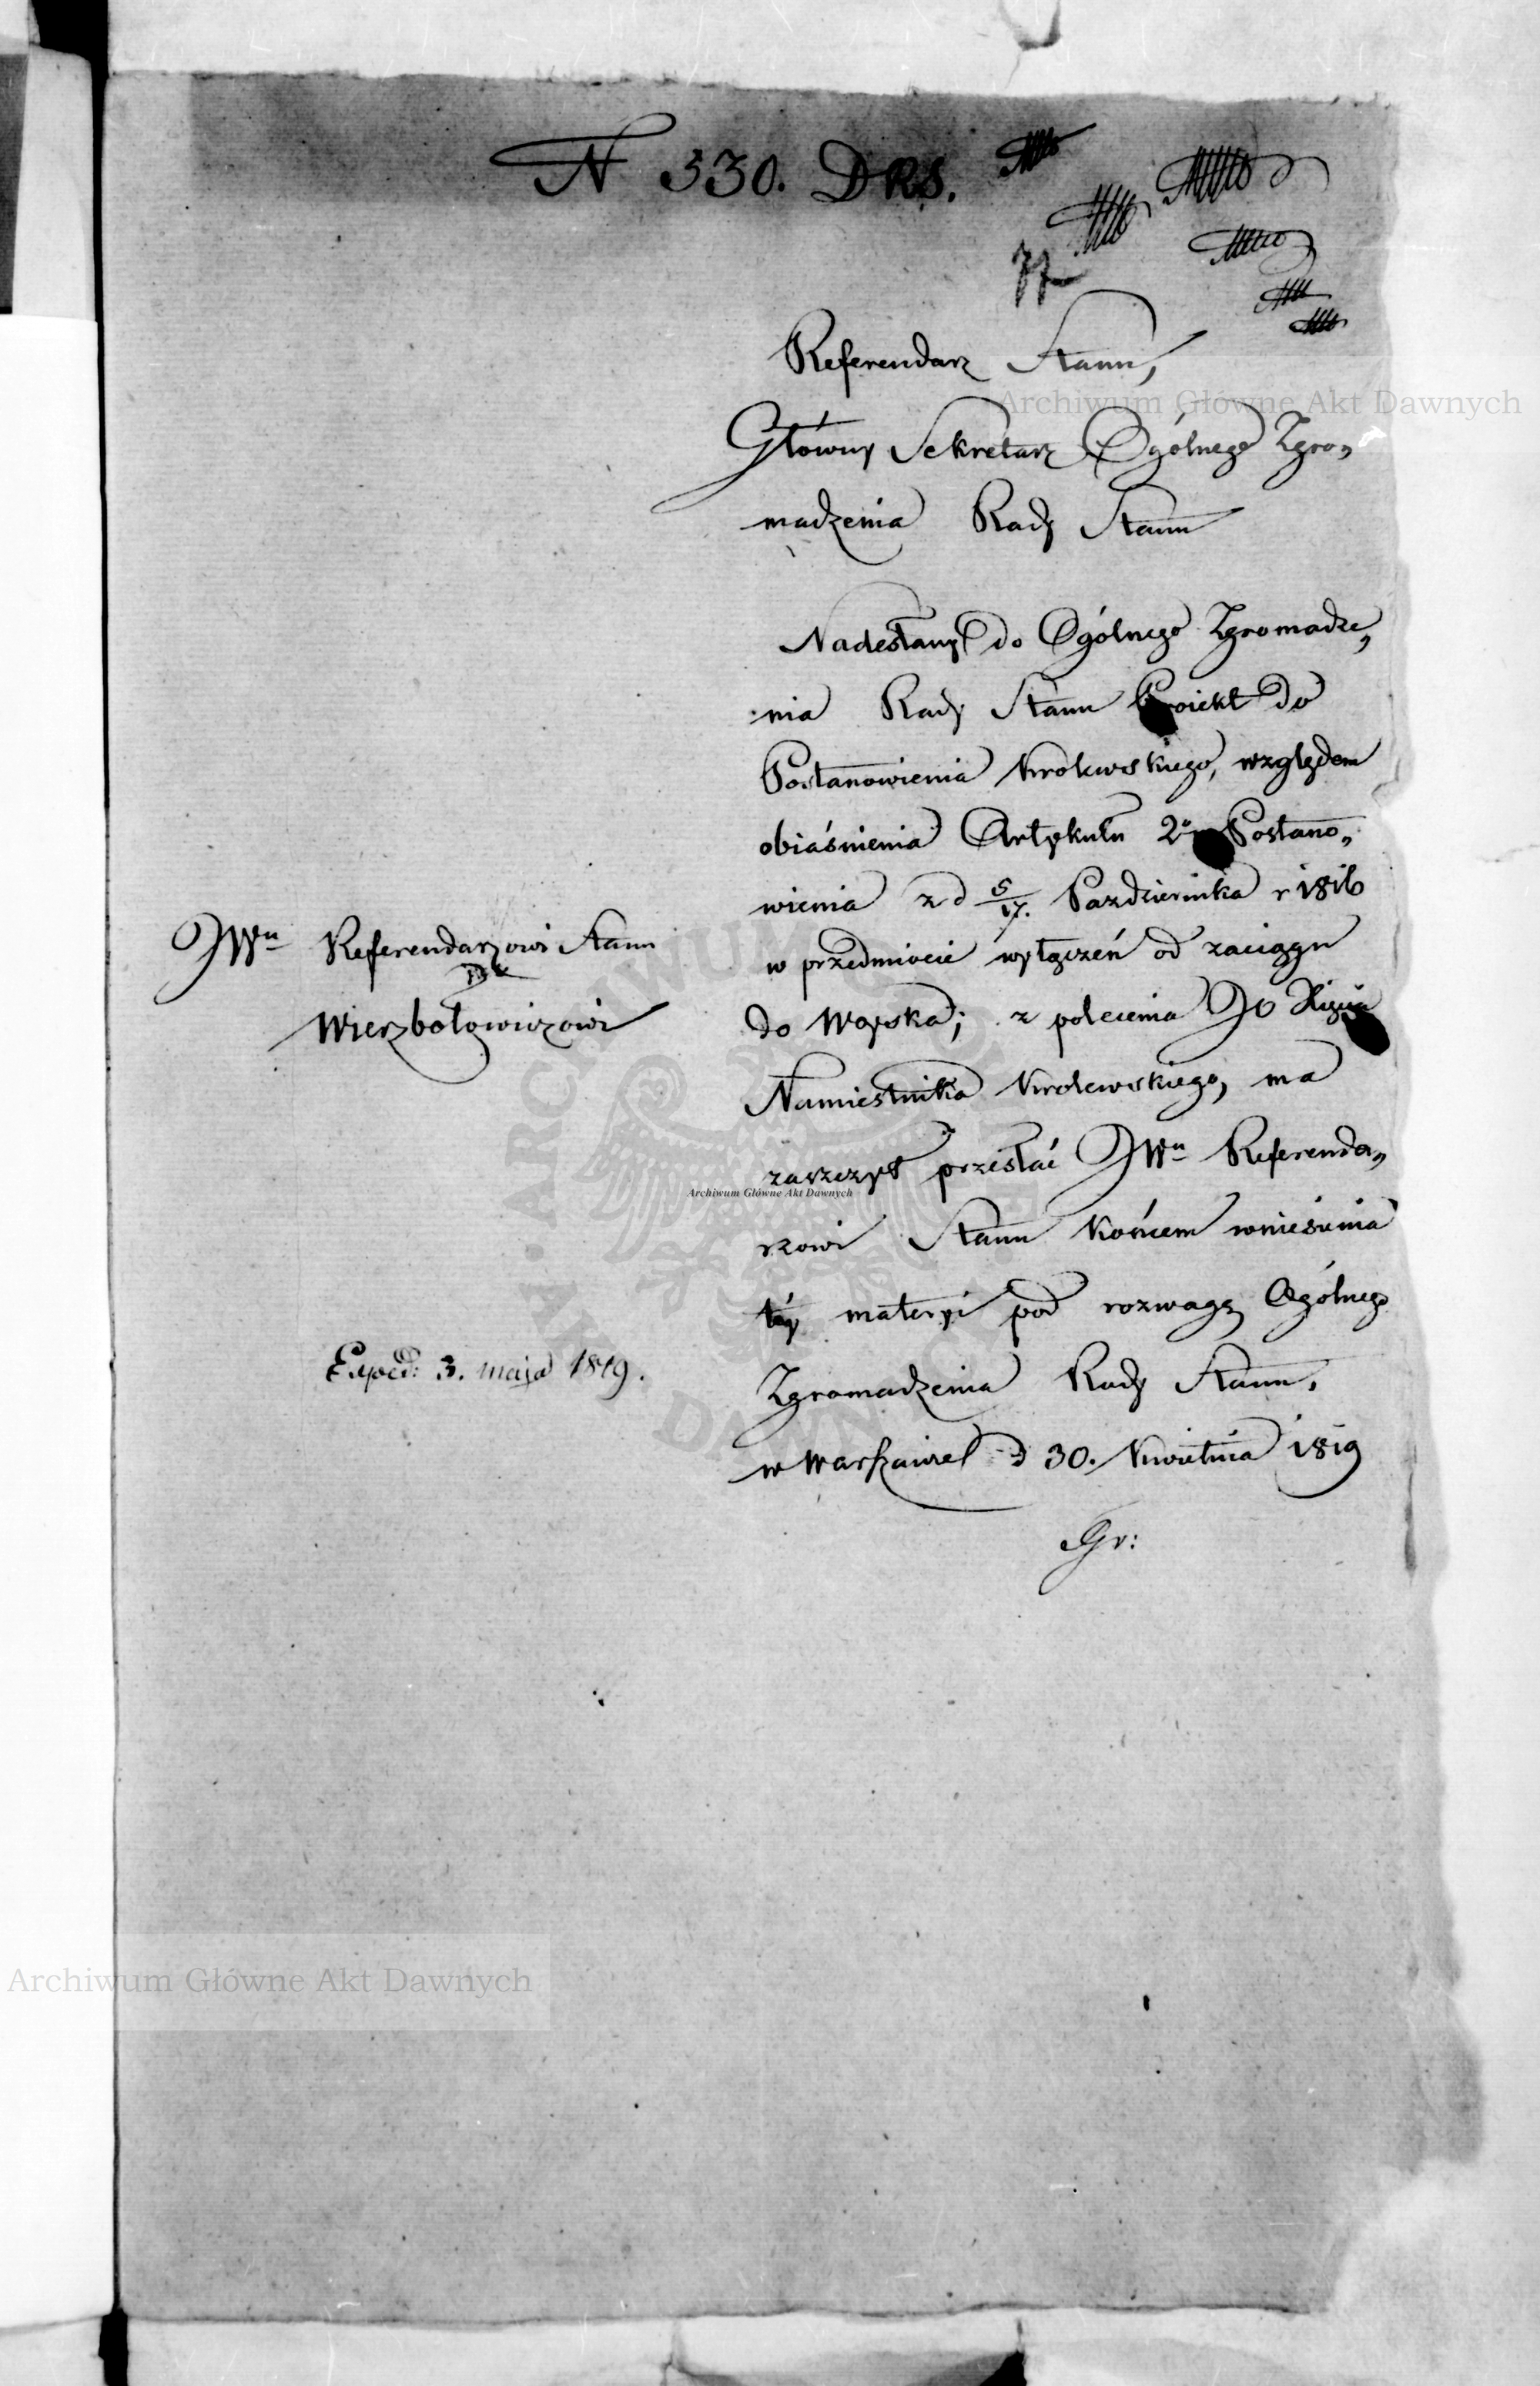 N 330. DRS.
Referendarz Stanu,
Główny Sekretarz Ogólnego Zgro„
madzenia Rady Stanu
Nadesłany do Ogólnego Zgromadze„
nia Rady Stanu Proiekt do
Postanowienia Krolewskiego, względem
obiaśnienia Artykułu 2º Postano„
wienia z d 5/17. Pazdziernika r 1816
w przedmiocie wyłączeń od zaciągu
do Woyska; z polecenia JO Xięcia
Namiestnika Krolewskiego, ma
zaszczyt przesłać JWu Referenda„
rzowi Stanu końcem wniesienia
téy materyi pod rozwagę Ogólnego
Zgromadzenia Rady Stanu.
w Warszawie d 30. Kwietnia 1819
Gr:
JWu Referendarzowi Stanu
Wierzbołowiczowi
Exped: 3. maja 1819.
Archiwum Główne Akt Dawnych
Archiwum Główne Akt Dawnych
Archiwum Główne Akt Dawnych